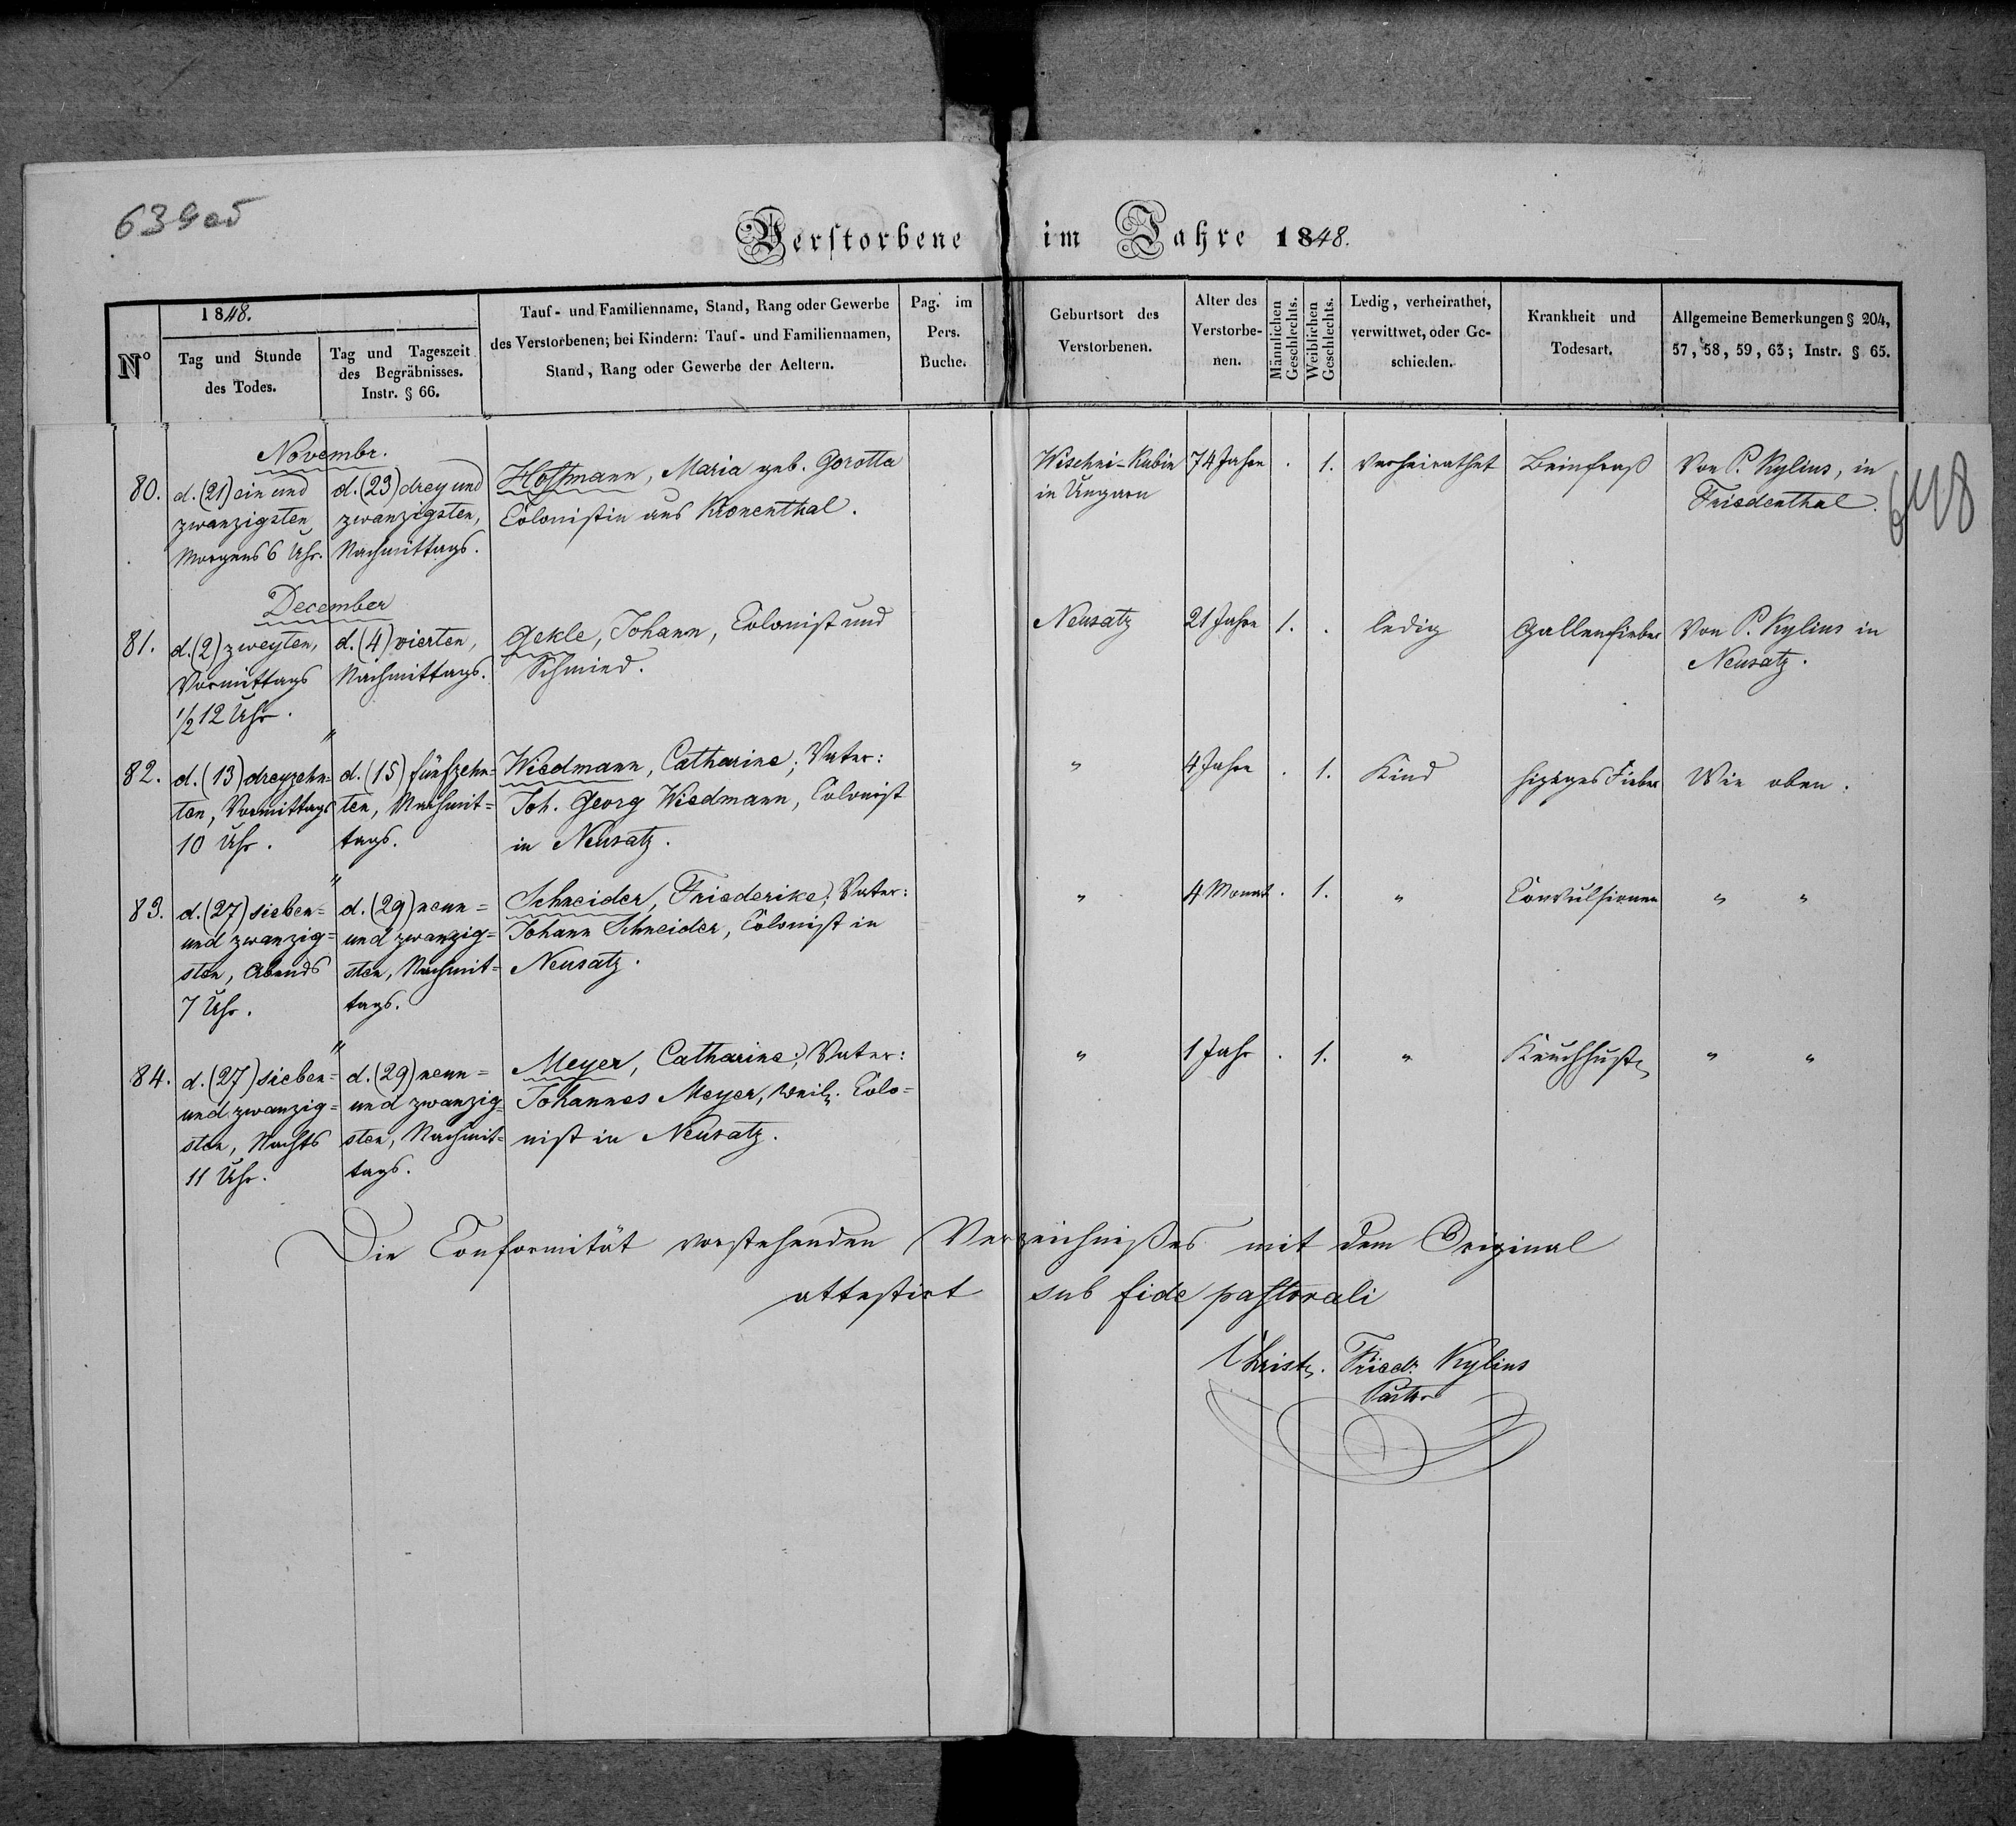 639 об
Verstorbene im Jahre 1848.
Nº
1848.
Tag und Stunde
des Todes.
Tag und Tageszeit
des Begräbnisses.
Instr. § 66.
Tauf- und Familienname, Stand, Rang oder Gewerbe
des Verstorbenen; bei Kindern: Tauf- und Familiennamen,
Stand, Rang oder Gewerbe der Aeltern.
Pag. im
Pers.
Buche.
Geburtsort des
Verstorbenen.
Alter des
Verstorbe-
nen.
Männlichen
Geschlechts.
Weiblichen
Geschlechts.
Ledig, verheirathet,
verwittwet, oder Ge-
schieden.
Krankheit und
Todesart.
Allgemeine Bemerkungen § 204,
57, 58, 59, 63; Instr. § 65.
Novembr.
80.
d. (21) ein und
zwanzigsten,
Morgens 6 Uhr.
d. (23) drey und
zwanzigsten,
Nachmittags.
Hoffmann, Maria geb. Gorotta
Colonistin aus Kronenthal.
Wischni-Kubin
in Ungarn
74 Jahre
.
1.
verheirathet
Beinfraß
Von P. Kylius, in
Friedenthal.
648
December
81.
d. (2) zweyten,
Vormittags
1/2 12 Uhr.
d. (4) vierten,
Nachmittags.
Gekle, Johann, Colonist und
Schmied.
Neusatz
21 Jahre
1.
.
ledig
Gallenfieber
Von P. Kylius in
Neusatz.
"
82.
d. (13) dreyzehn=
ten, Vormittags
10 Uhr.
d. (15) fünfzehn=
ten, Nachmit=
tags.
Wiedmann, Catharine; Vater:
Joh. Georg Wiedmann, Colonist
in Neusatz.
"
4 Jahre
.
1.
Kind
hiziges Fieber
Wie oben.
"
83.
d. (27) sieben=
und zwanzig=
sten, Abends
7 Uhr.
d. (29) neun=
und zwanzig=
sten, Nachmit=
tags.
Schneider, Friederike; Vater:
Johann Schneider, Colonist in
Neusatz.
"
4 Monat
.
1.
"
Convulsionen
" "
"
84.
d. (27) sieben=
und zwanzig=
sten, Nachts
11 Uhr.
d. (29) neun=
und zwanzig=
sten, Nachmit=
tags.
Meyer, Catharine; Vater:
Johannes Meyer, weil. Colo=
nist in Neusatz.
"
1 Jahr
.
1.
"
Keuchhust
" "
Die Conformität vorstehenden Verzeichnißes mit dem Original
attestirt sub fide pastorali
Christ. Friedr. Kylius
Pastor